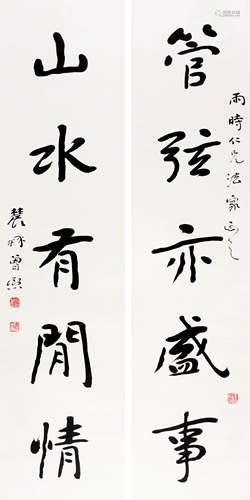 雨時仁兄法家正之
管弦亦盛事
山水有閒情
農髯曾熙